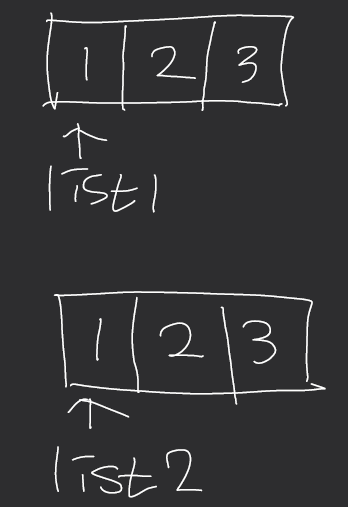 1 2 3
list1
1 2 3
list2